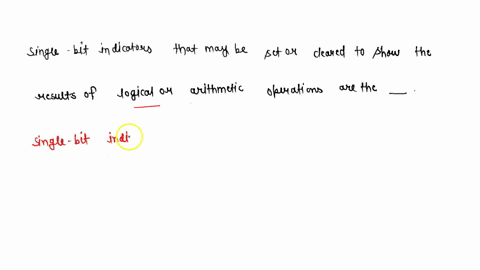 single-bit indicators that may be set or cleared to show the
results of logical or arithmetic operations are the __.
single-bit indi